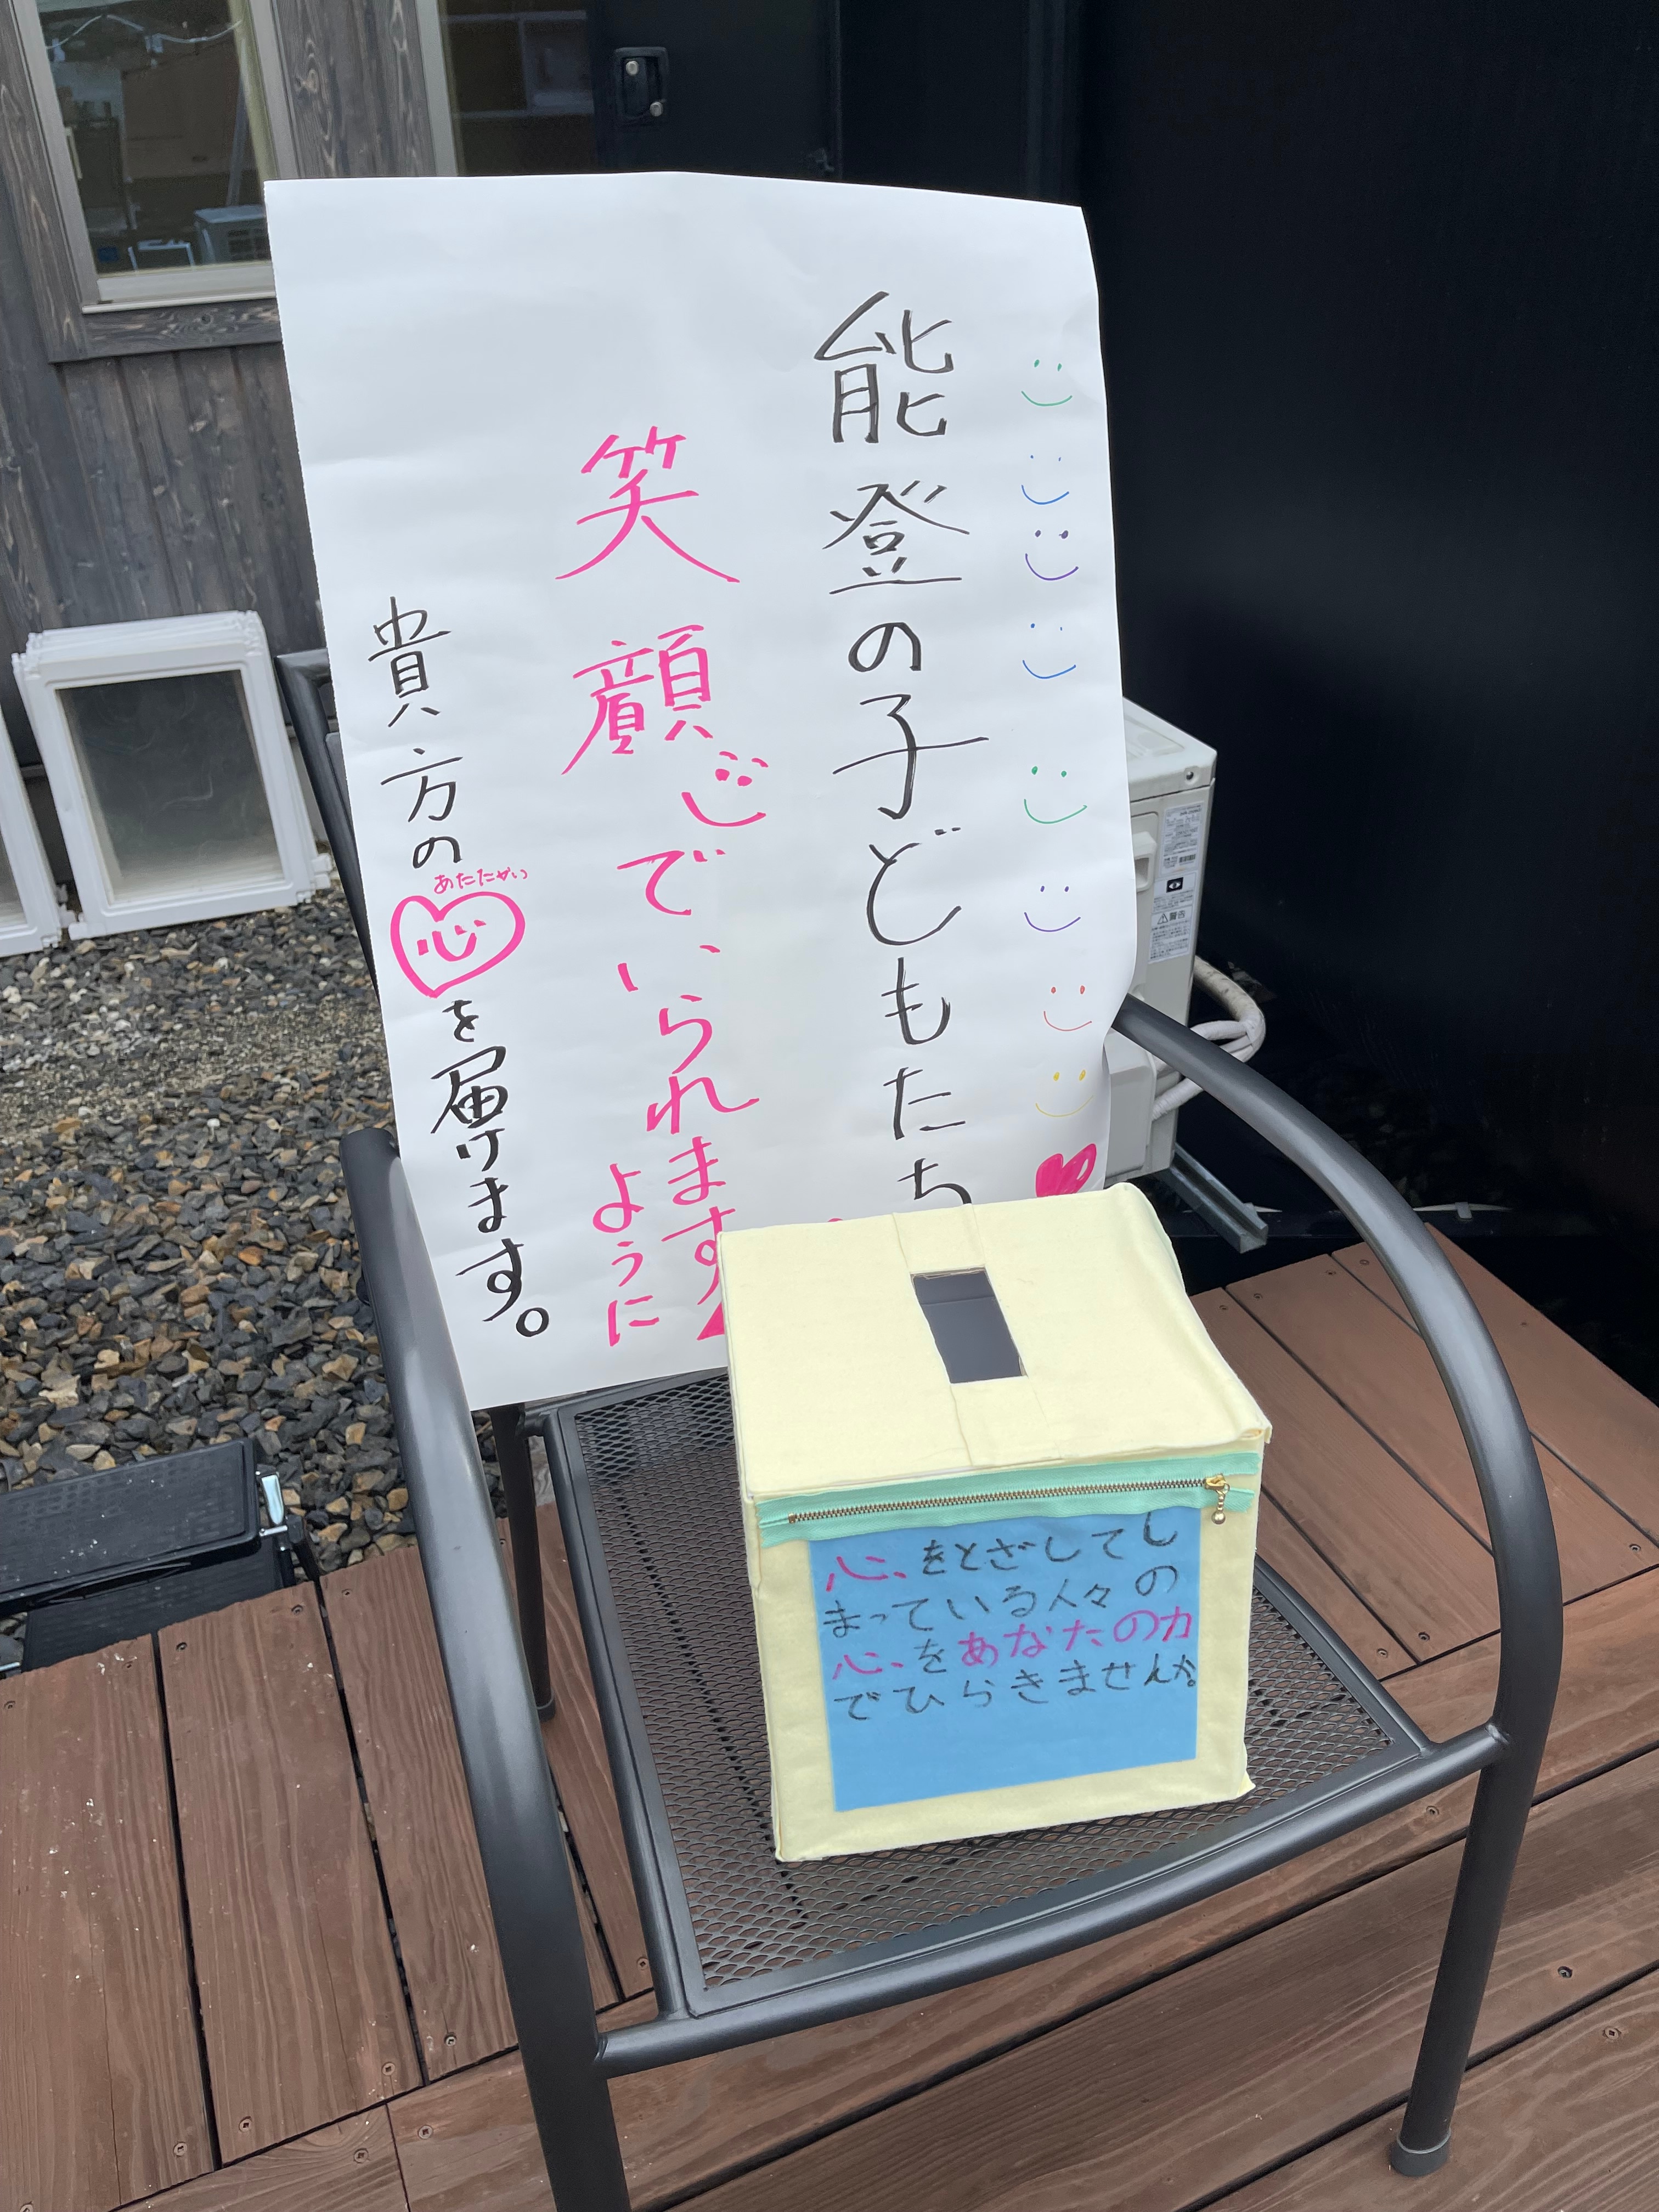 能登の子どもたち
笑顔でいられます
ように
貴方の心を届けます。
あたたかい
心をとざしてし
まっている人々の
心をあなたの力
でひらきませんか。
警告